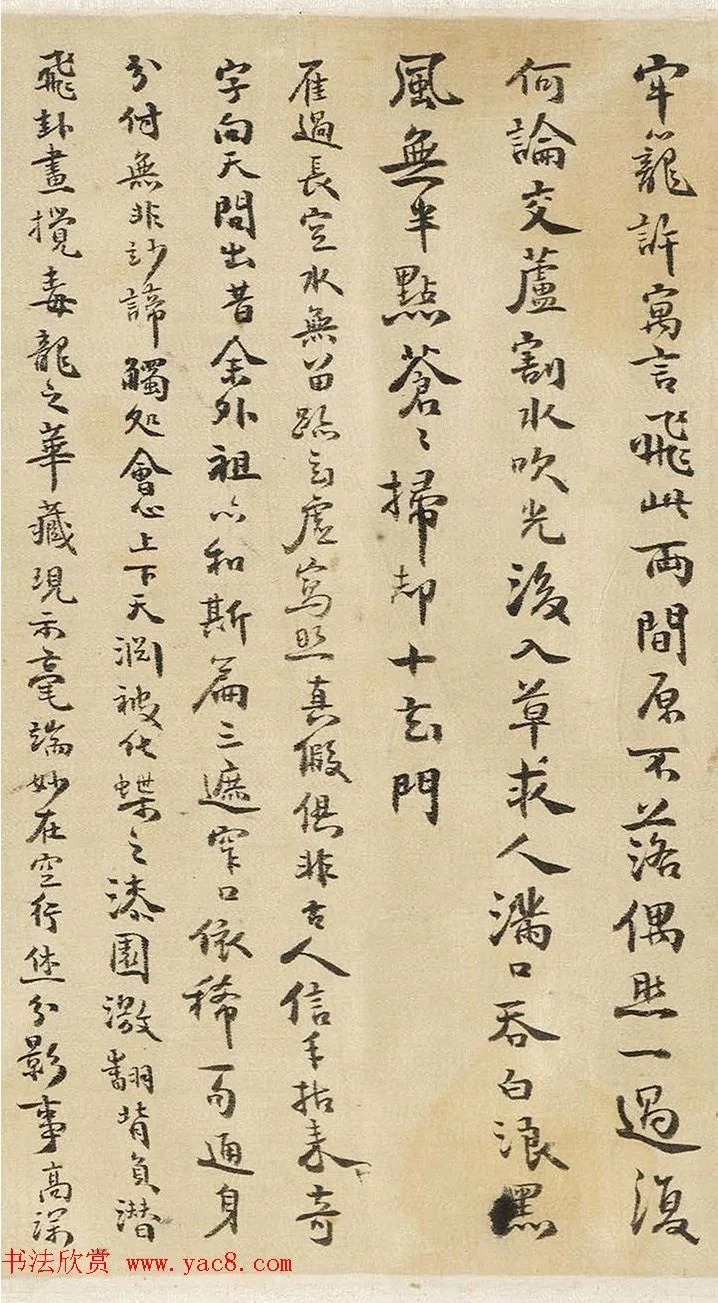 牢籠許寓言飛此兩間原不落偶然一過復
何論交蘆割水吹光後入草求人滿口吞白浪黑
風無半點蒼〻掃却十玄門
雁過長空水無留跡玄虛寫照真假俱非古人信手拈來奇
字向天問出昔余外祖亦和斯篇三遮窄口依稀一句通身
分付無非妙諦觸處會心上下天淵被化蝶之漆園激翻背負潛
飛卦畫攪毒龍之華藏現示毫端妙在空行 分影事高深
书法欣赏 www.yac8.com